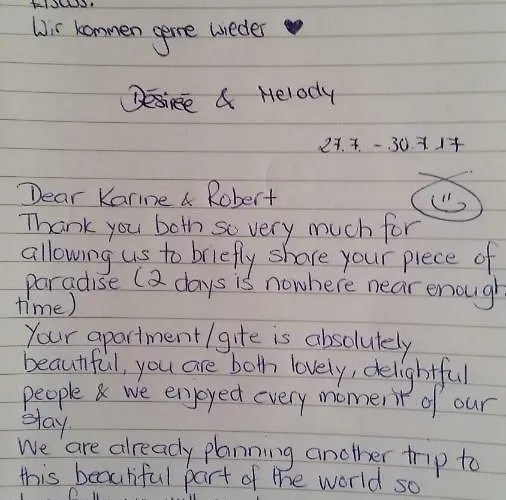 Wir kommen gerne wieder ♥
Désirée & Melody
27.7. - 30.7.17
Dear Karine & Robert
Thank you both so very much for
allowing us to briefly share your piece of
paradise (2 days is nowhere near enough
time)
Your apartment/gite is absolutely
beautiful, you are both lovely, delightful
people & we enjoyed every moment of our
stay.
We are already planning another trip to
this beautiful part of the world so